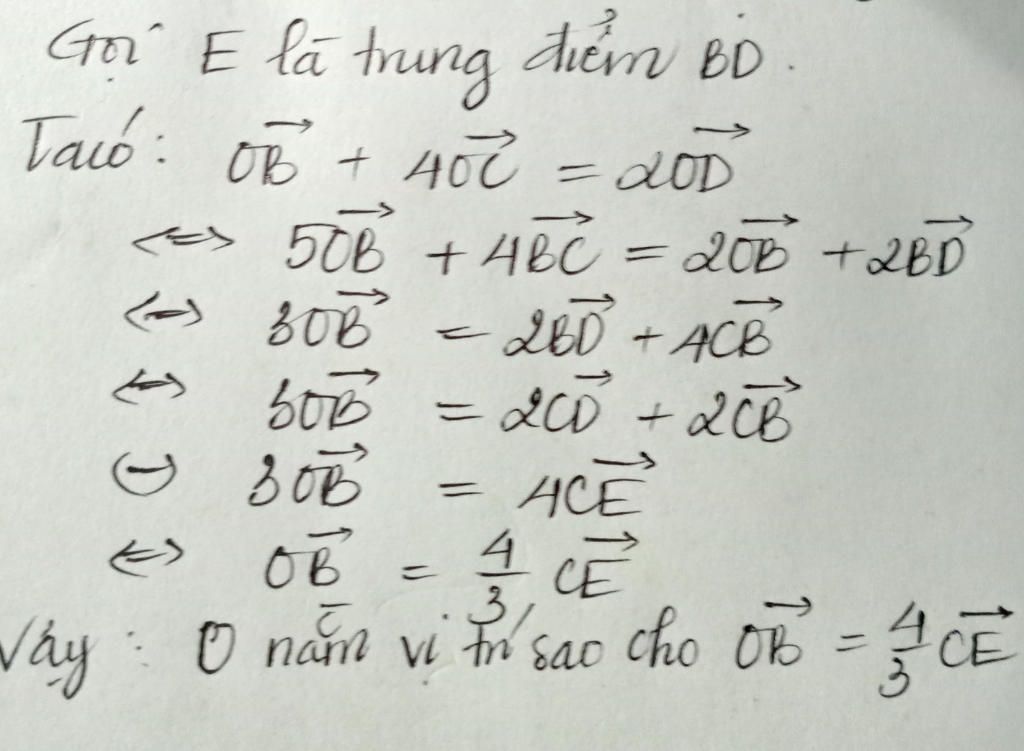 Gọi E là trung điểm BD.
Ta có: $\overrightarrow{OB} + 4\overrightarrow{OC} = 2\overrightarrow{OD}$
<=> $5\overrightarrow{OB} + 4\overrightarrow{BC} = 2\overrightarrow{OB} + 2\overrightarrow{BD}$
<=> $3\overrightarrow{OB} = 2\overrightarrow{BD} + 4\overrightarrow{CB}$
<=> $3\overrightarrow{OB} = 2\overrightarrow{CD} + 2\overrightarrow{CB}$
<=> $3\overrightarrow{OB} = 4\overrightarrow{CE}$
<=> $\overrightarrow{OB} = \frac{4}{3}\overrightarrow{CE}$
Vậy: O nằm vị trí sao cho $\overrightarrow{OB} = \frac{4}{3}\overrightarrow{CE}$